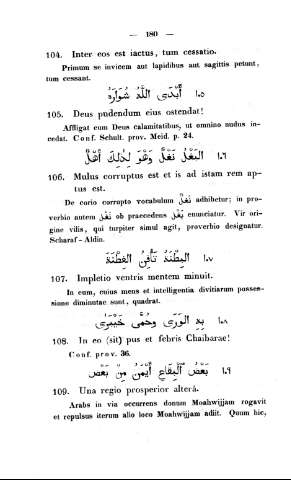 — 180 —
104. Inter eos est iactus, tum cessatio.
Primum se invicem aut lapidibus aut sagittis petunt,
tum cessant.
١٠٥ أَبْدَى ٱللّٰهُ شُوَارَهُ
105. Deus pudendum eius ostendat!
Affligat eum Deus calamitatibus, ut omnino nudus in-
cedat. Conf. Schult. prov. Meid. p. 24.
١٠٦ ٱلْبَغْلُ نَغْلٌ وَهْوَ لِذٰلِكَ أَهْلٌ
106. Mulus corruptus est et is ad istam rem ap-
tus est.
De corio corrupto vocabulum نَغْلٌ adhibetur; in pro-
verbio autem نَغْلٌ ob praecedens بَغْلٌ enunciatur. Vir ori-
gine vilis, qui turpiter simul agit, proverbio designatur.
Scharaf-Aldin.
١٠٧ ٱلْبِطْنَةُ تَأْفِنُ ٱلْفِطْنَةَ
107. Impletio ventris mentem minuit.
In eum, cuius mens et intelligentia divitiarum posses-
sione diminutae sunt, quadrat.
١٠٨ بِهِ ٱلْوَرَى وَحُمَّى خَيْبَرَى
108. In eo (sit) pus et febris Chaibarae!
Conf. prov. 36.
١٠٩ بَعْضُ ٱلْبِقَاعِ أَيْمَنُ مِنْ بَعْضٍ
109. Una regio prosperior alterâ.
Arabs in via occurrens donum Moahwijjam rogavit
et repulsus iterum alio loco Moahwijjam adiit. Quum hic,